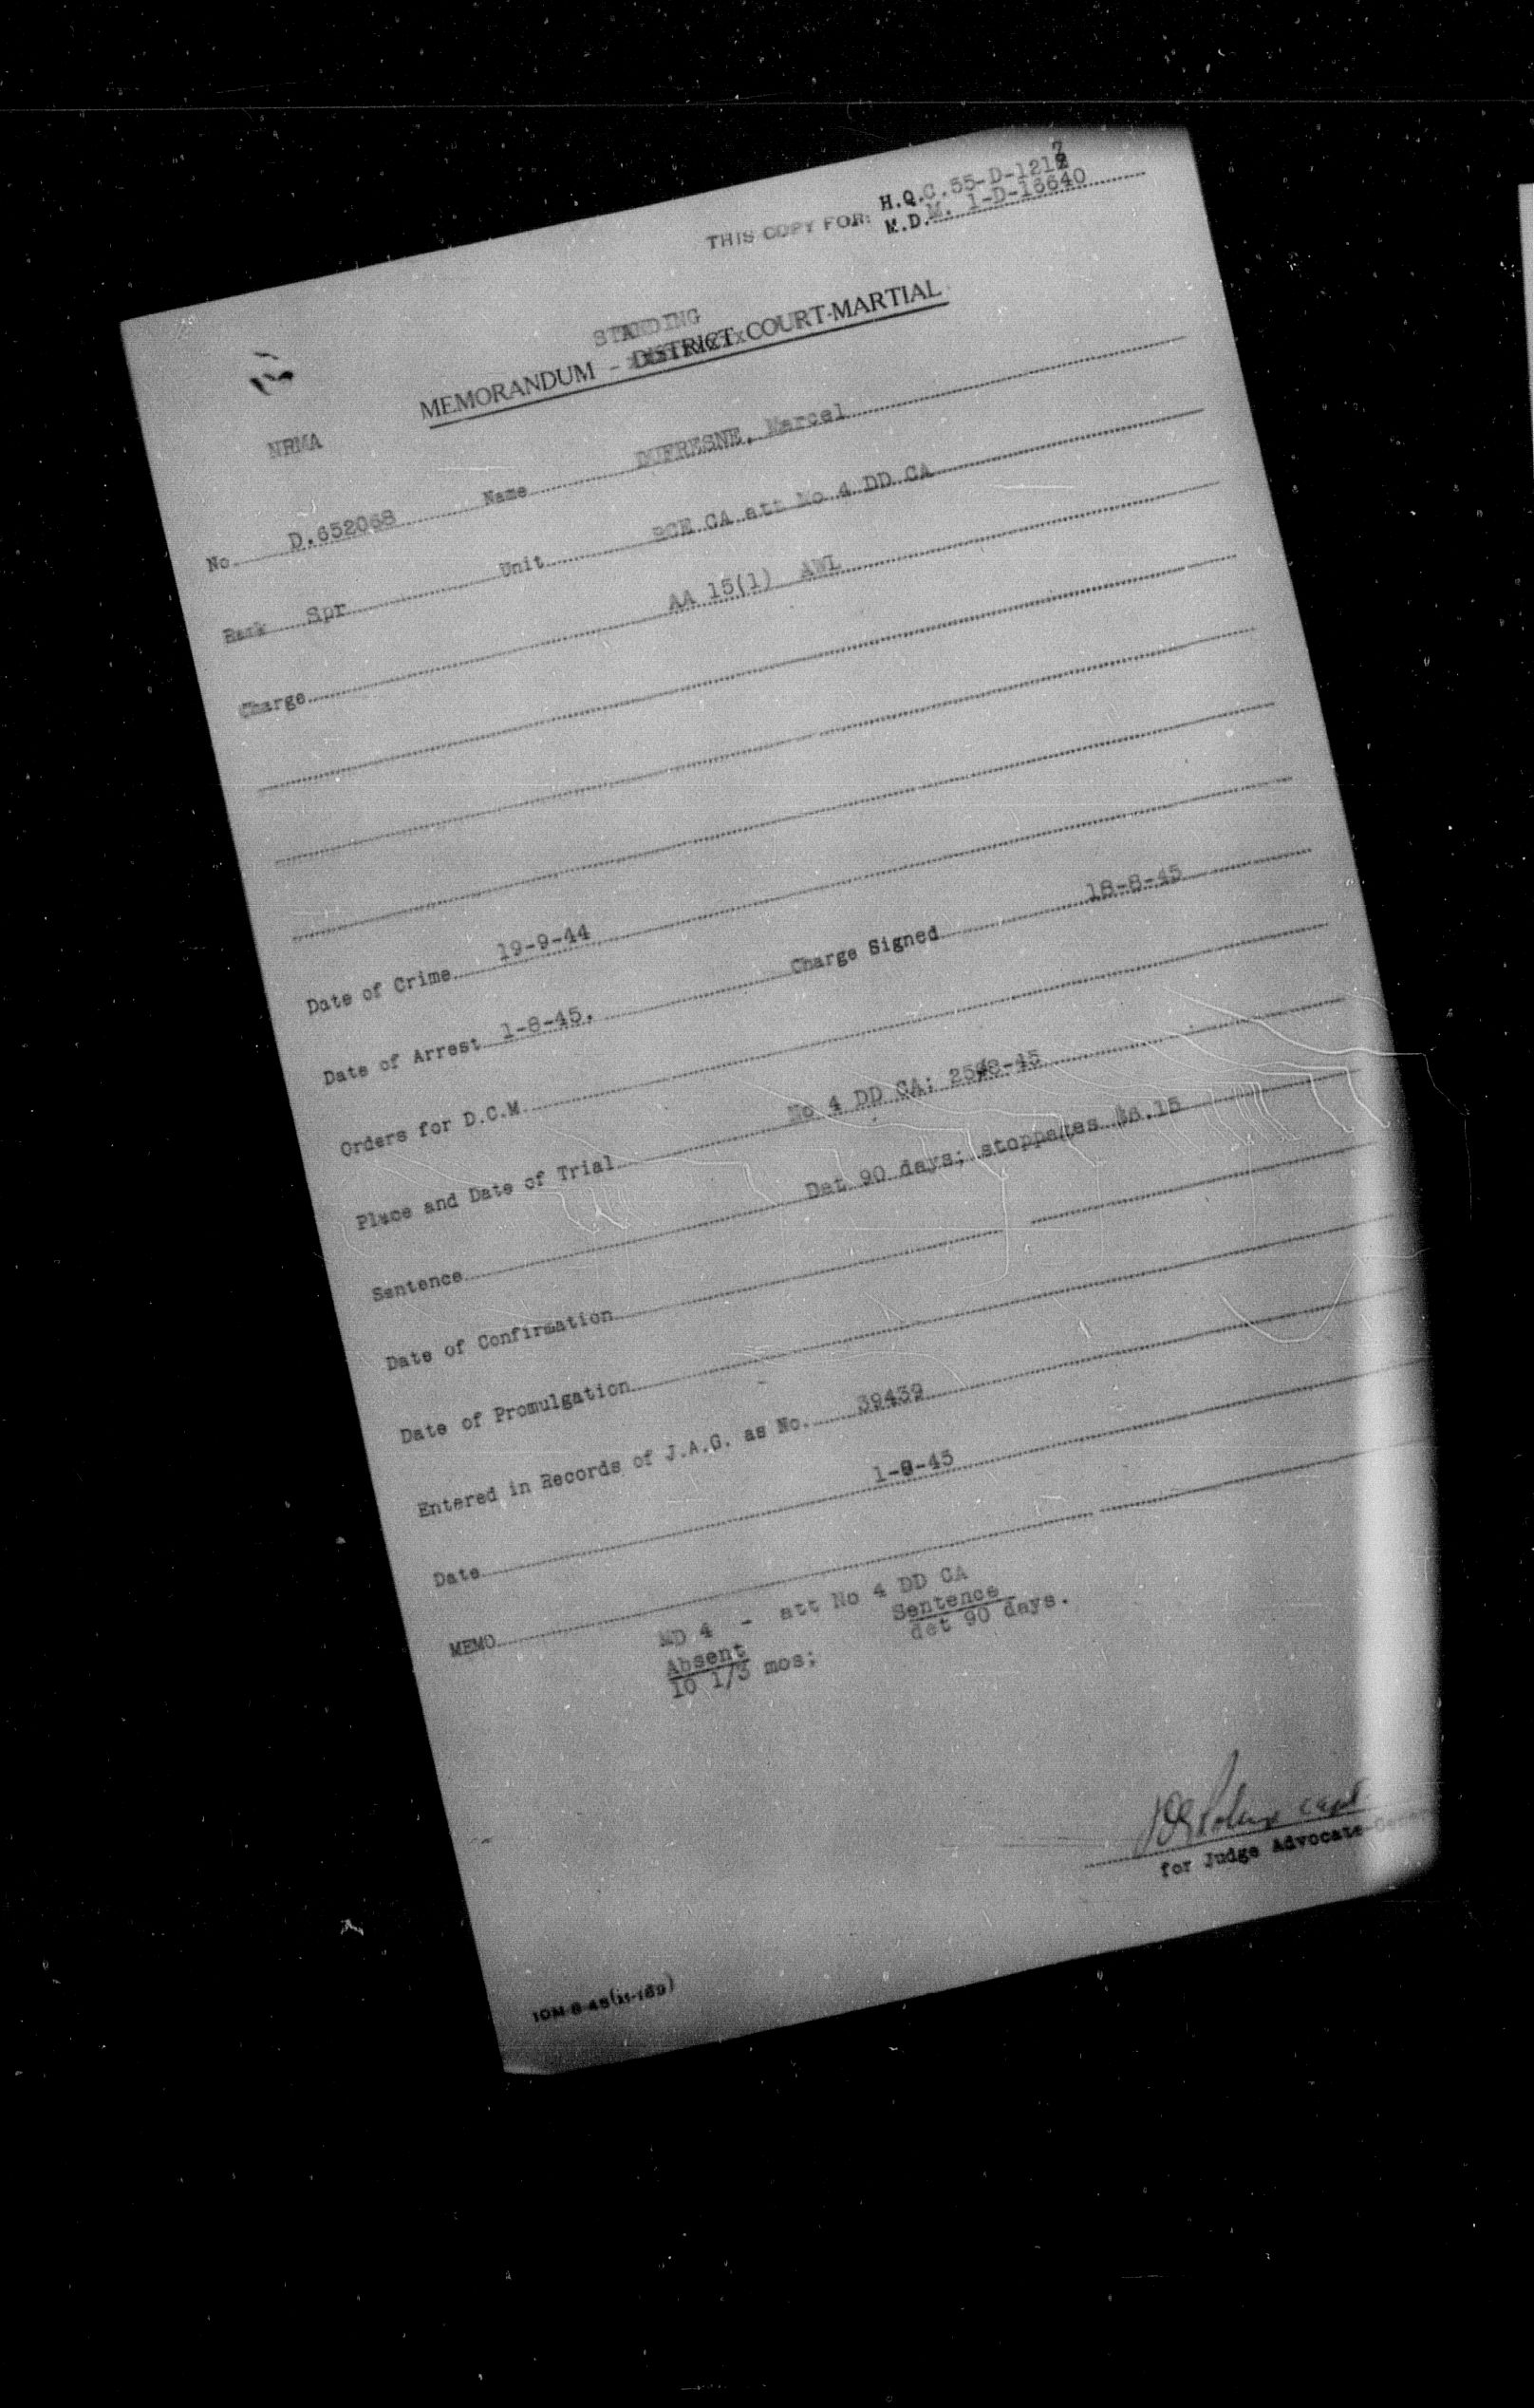 H.Q.C. 55-D-1217
THIS COPY FOR: M.D.M. 1-D-16640
STANDING
MEMORANDUM - DISTRICT COURT-MARTIAL
NRMA
No. D.652068 Name DUFRESNE, Marcel
Rank Spr Unit RCE CA att No 4 DD CA
Charge AA 15(1) AWL
Date of Crime 19-9-44
Date of Arrest 1-8-45. Charge Signed 18-8-45
Orders for D.C.M.
Place and Date of Trial No 4 DD CA; 25-8-45
Sentence Det 90 days; stoppages $6.15
Date of Confirmation
Date of Promulgation
Entered in Records of J.A.G. as No. 39439
Date 1-9-45
MEMO
MD 4 - att No 4 DD CA
Absent Sentence
10 1/3 mos; det 90 days.
capt
for Judge Advocate-General